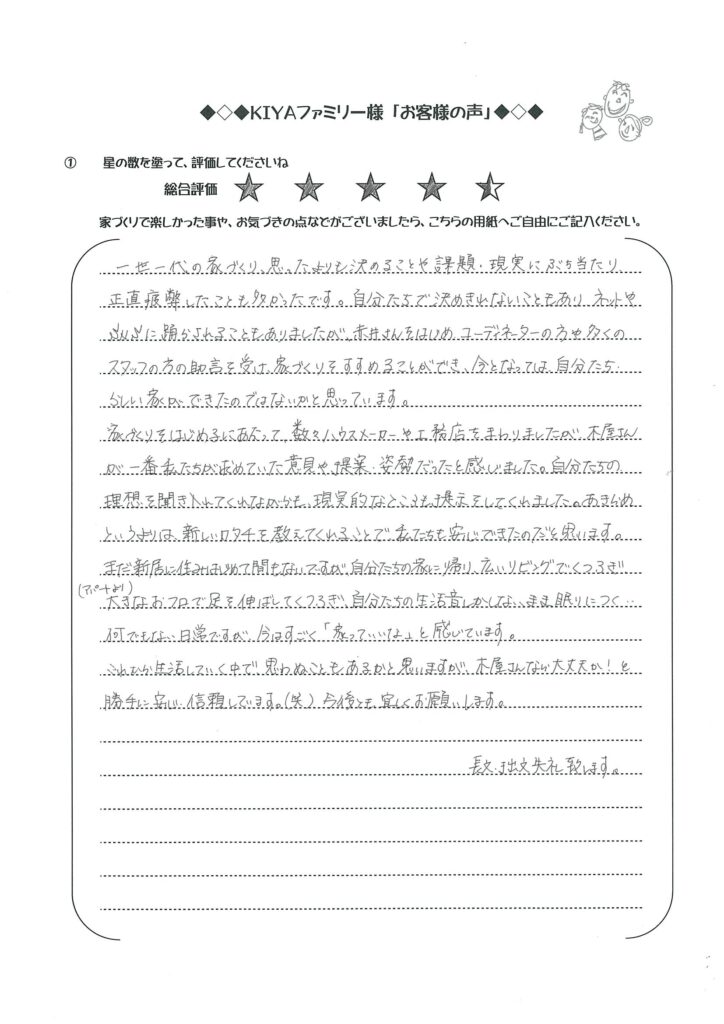 ◆◇◆KIYAファミリー様「お客様の声」◆◇◆
① 星の数を塗って、評価してくださいね
総合評価 ★ ★ ★ ★ ⯪
家づくりで楽しかった事や、お気づきの点などがございましたら、こちらの用紙へご自由にご記入ください。
一世一代の家づくり、思ったよりも決めることや課題・現実にぶち当たり
正直疲弊したことも多かったです。自分たちで決めきれないこともあり、ネットや
に踊らされることもありましたが、赤井さんをはじめ、コーディネーターの方や多くの
スタッフの方の助言を受け、家づくりをすすめることができ、今となっては、自分たち
らしい家ができたのではないかと思っています。
家づくりをはじめるにあたって、数々ハウスメーカーや工務店をまわりましたが、木屋さん
が一番私たちが求めていた意見や、提案・姿勢だったと感じました。自分たちの
理想を聞き入れてくれながらも、現実的なところも提示をしてくれました。あきらめ
というよりは、新しいカタチを教えてくれることで私たちも安心できたのだと思います。
まだ新居に住みはじめて間もないですが、自分たちの家に帰り、広いリビングでくつろぎ
(アパートより)
大きなおフロで足を伸ばしてくつろぎ、自分たちの生活音しかしないまま眠りにつく…
何でもない日常ですが、今はすごく「家っていいな」と感じています。
これから生活していく中で思わぬこともあるかと思いますが、木屋さんなら大丈夫か!と
勝手に安心・信頼しています。(笑) 今後とも宜しくお願いします。
長文・拙文失礼致します。